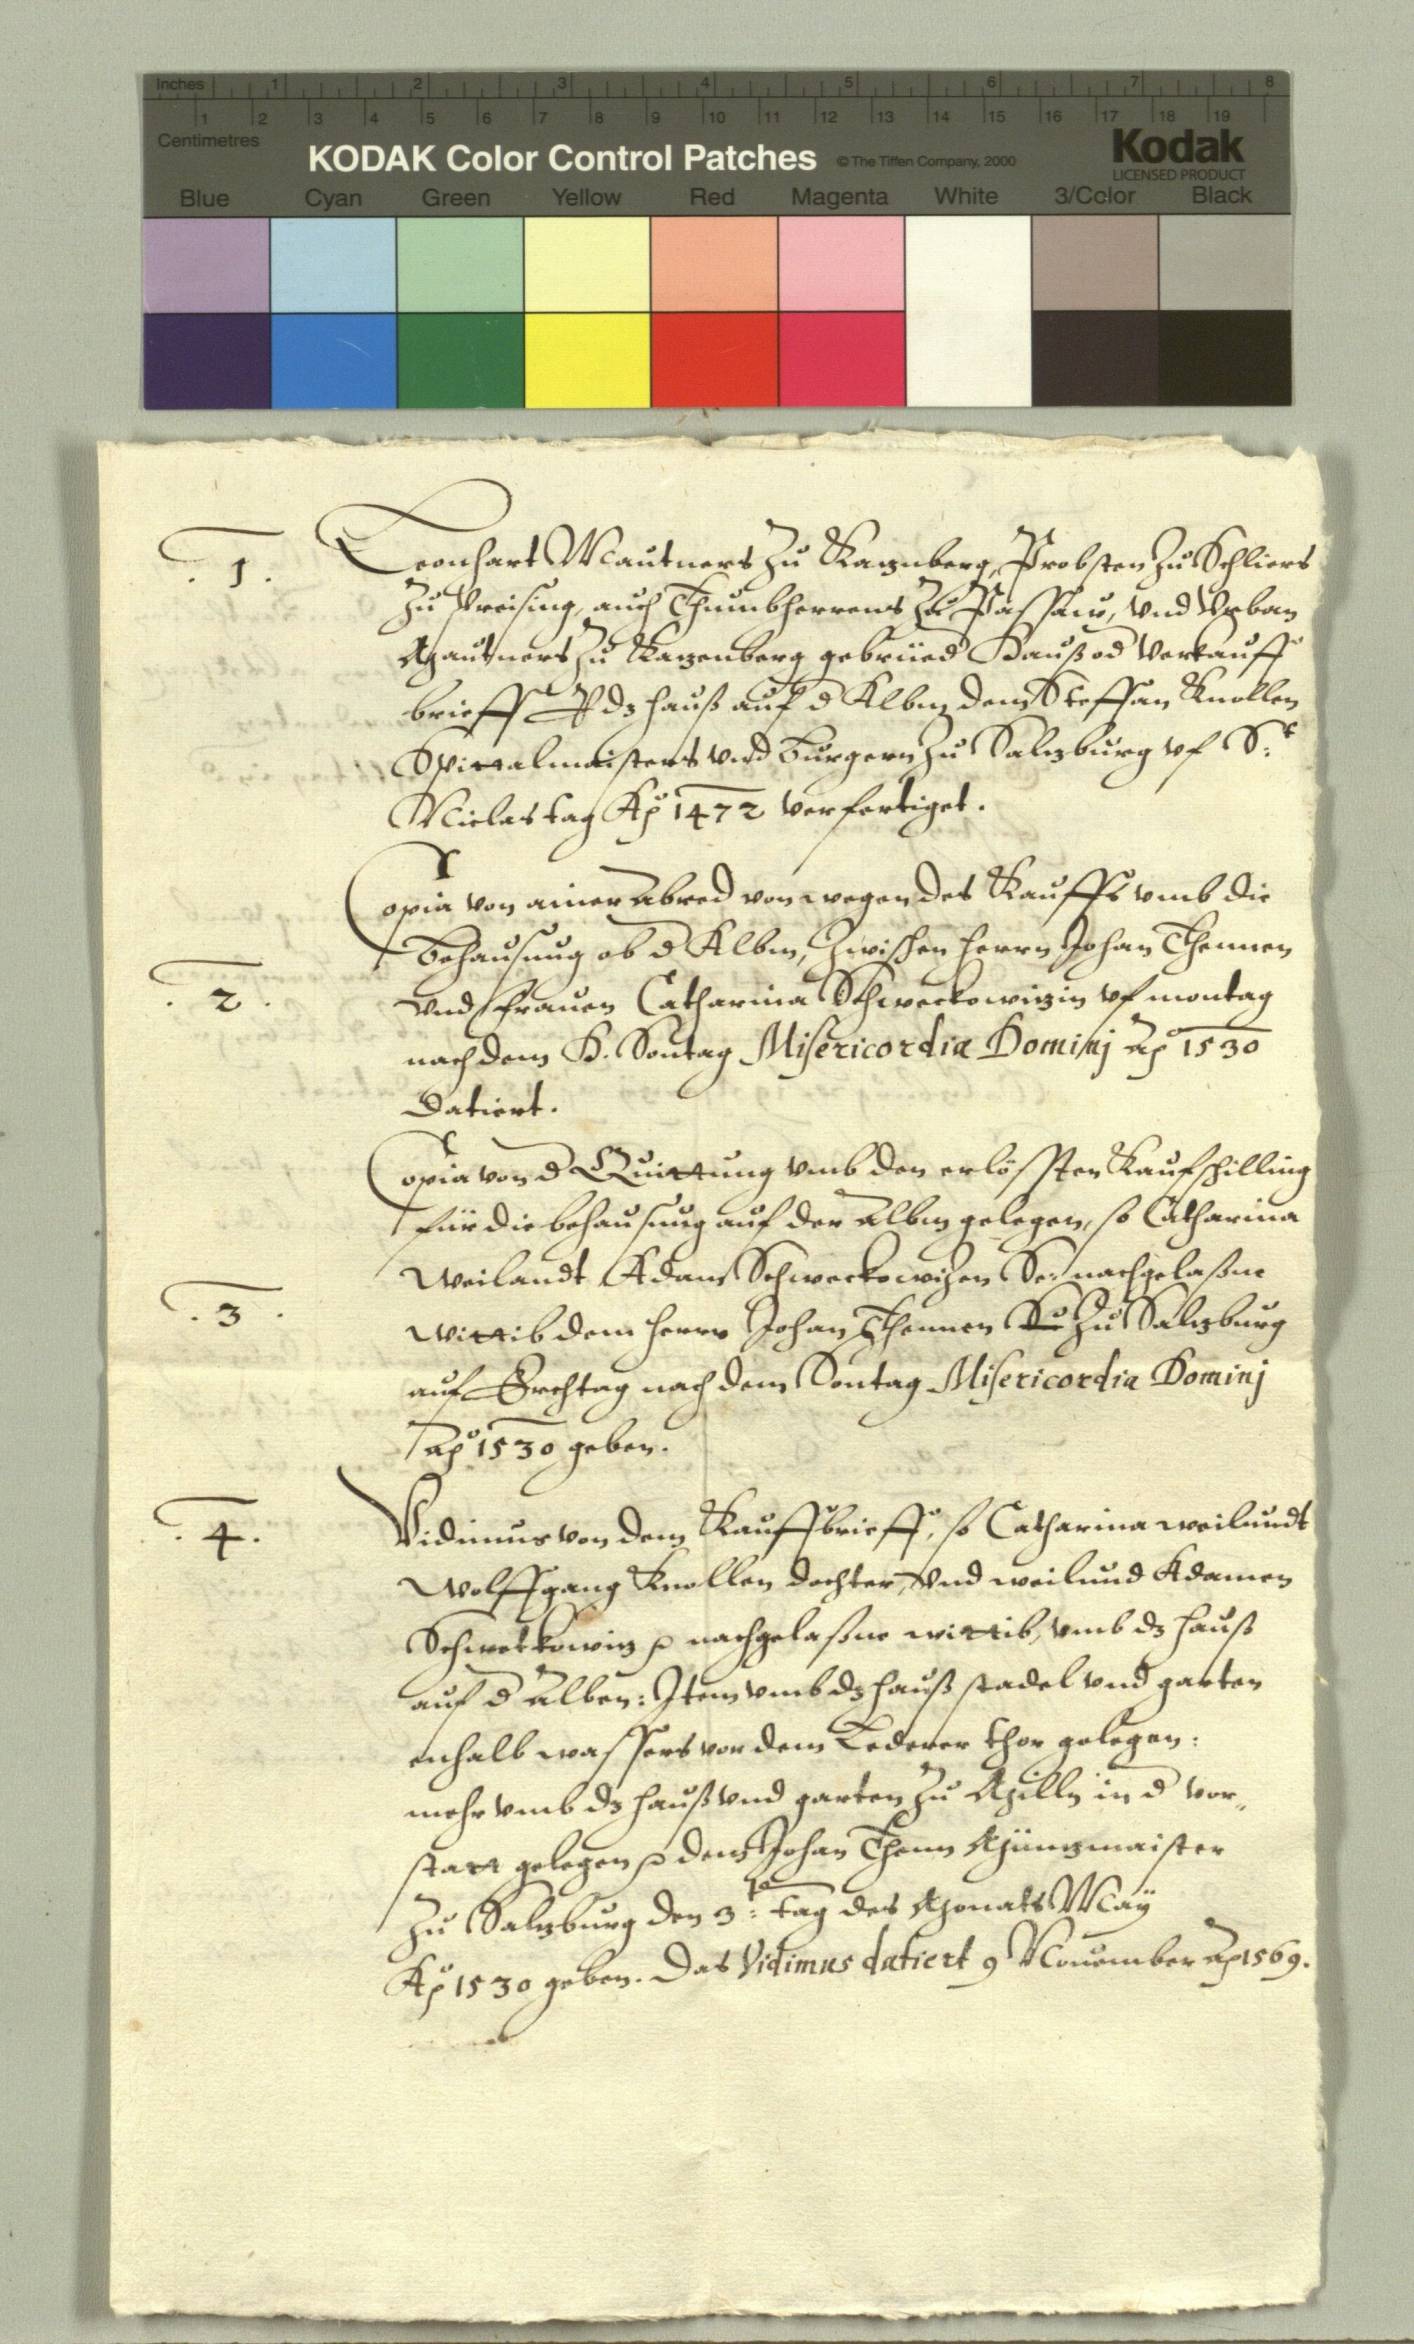 Inches 1 2 3 4 5 6 7 8
1 2 3 4 5 6 7 8 9 10 11 12 13 14 15 16 17 18 19
Centimetres
KODAK Color Control Patches © The Tiffen Company, 2000 Kodak
LICENSED PRODUCT
Blue Cyan Green Yellow Red Magenta White 3/Color Black
.1. Leonhart Mautners zu Kaznberg, Probsten zu Schliers
zu Freising, auch Thumbherrens zu Passaw, vnd Vrban
Mautners zu Kazenberg gebrüed Hauß od Verkauff
brieff dz hauß auf d Albm dem Steffan Knollen
Spittalmaisters vnd Burgern zu Salzburg vf S:t
Niclas tag Aõ 1472 verfertiget.
Copia von ainer Abred von wegen des Kauffs vmb die
Behausung ob d Albm, zwischen herrn Johan Thennen
.2. vnd frauen Catharina Schweckowizin vf montag
nach dem H. Sontag Misericordia Dominj Aõ 1530
datiert.
Copia von d Quittung vmb den erlössten Kaufschilling
für die behausung auf der Albm gelegen, so Catharina
Weilandt Adam Schweckowizen Se: nachgelaßne
.3. wittib dem herrn Johan Thennen zu Salzburg
auf Erchtag nach dem Sontag Misericordia Dominj
Aõ 1530 geben.
.4. Vidimus von dem Kauffbrieff, so Catharina weilundt
Wolffgang Knollen dochter, vnd weilund Adamen
Schwekkowiz nachgelaßne wittib, vmb dz hauß
auf d Alben: Item vmb dz hauß stadel vnd garten
enhalb wassers vor dem Lederer thor gelegen:
mehr vmb dz hauß vnd garten zu Mülln in d vor„
statt gelegen dem Johan Thenn Münzmaister
zu Salzburg den 3:ten tag des Monats May
Aõ 1530 geben. Das Vidimus datiert 9 Nouember Aõ 1569.